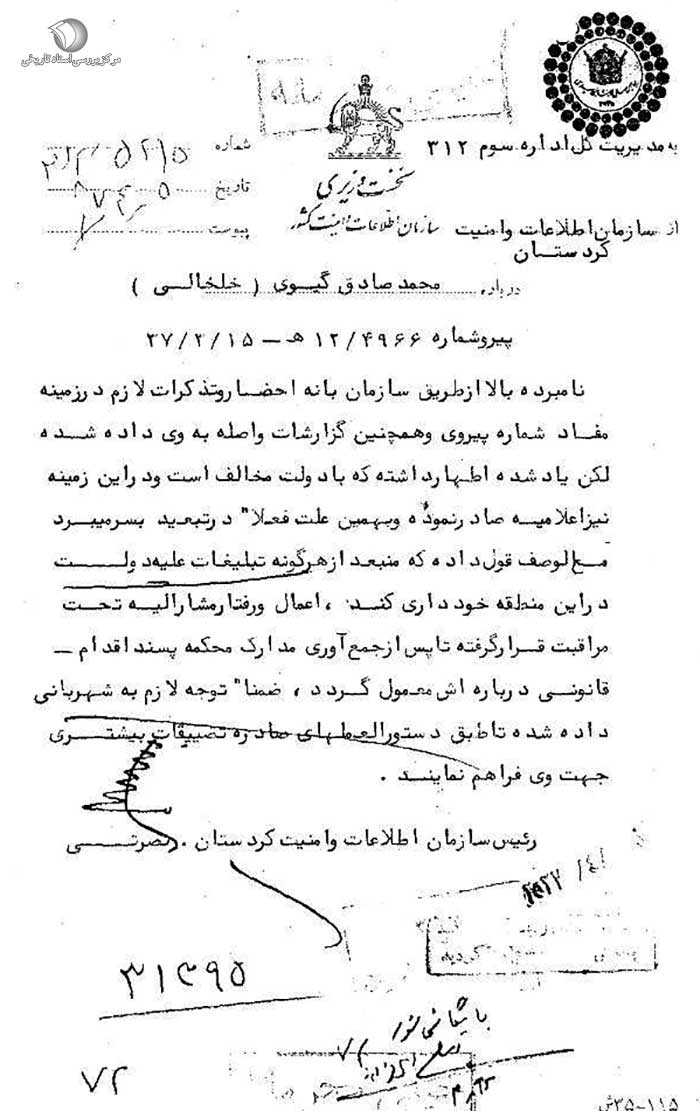 مرکز بررسی اسناد تاریخی
به مدیریت کل اداره سوم ۳۱۲
شماره
تاریخ
پیوست
نخست وزیری
سازمان اطلاعات و امنیت کشور
از سازمان اطلاعات وامنیت
کردستان
درباره محمد صادق گیوی ( خلخالی )
پیروشماره ۱۲/۴۹۶۶ هـ – ۳۷/۳/۱۵
نامبرده بالا ازطریق سازمان بانه احضاروتذکرات لازم درزمینه
مفاد شماره پیروی وهمچنین گزارشات واصله به وی داده شده
لکن یاد شده اظهارداشته که بادولت مخالف است ودراین زمینه
نیزاعلامیه صادرنموده وبهمین علت فعلا" درتبعید بسرمیبرد
مع لوصف قول داده که منبعد ازهرگونه تبلیغات علیه دولت
دراین منطقه خودداری کند ، اعمال ورفتارمشارالیه تحت
مراقبت قرارگرفته تاپس ازجمع آوری مدارک محکمه پسند اقدام –
قانونی درباره اش معمول گردد ، ضمنا" توجه لازم به شهربانی
داده شده تاطبق دستورالعملهای صادره تضییقات بیشتری
جهت وی فراهم نمایند .
رئیس سازمان اطلاعات وامنیت کردستان . نصرتی
۳۱۳۹۵
بایگانی شود
۷۲
۷۲
۳۵-۱۱۵ش